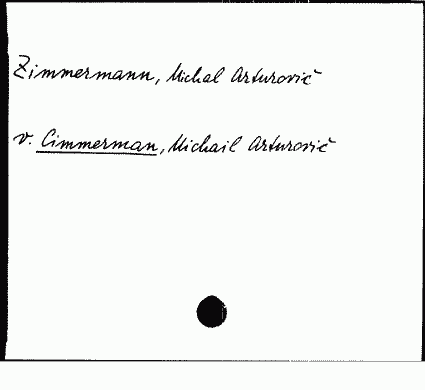 Zimmermann, Michal Arturovič
v. Cimmerman, Michail Arturovič